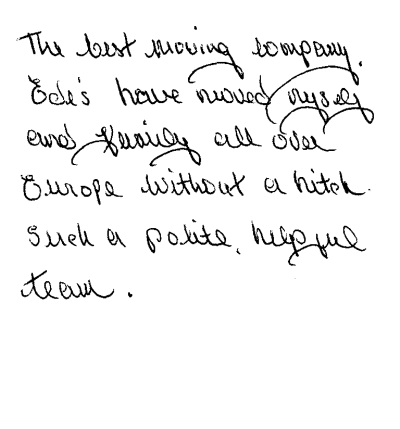 The best moving company.
Ede's have moved myself
and family all over
Europe without a hitch.
Such a polite, helpful
team.